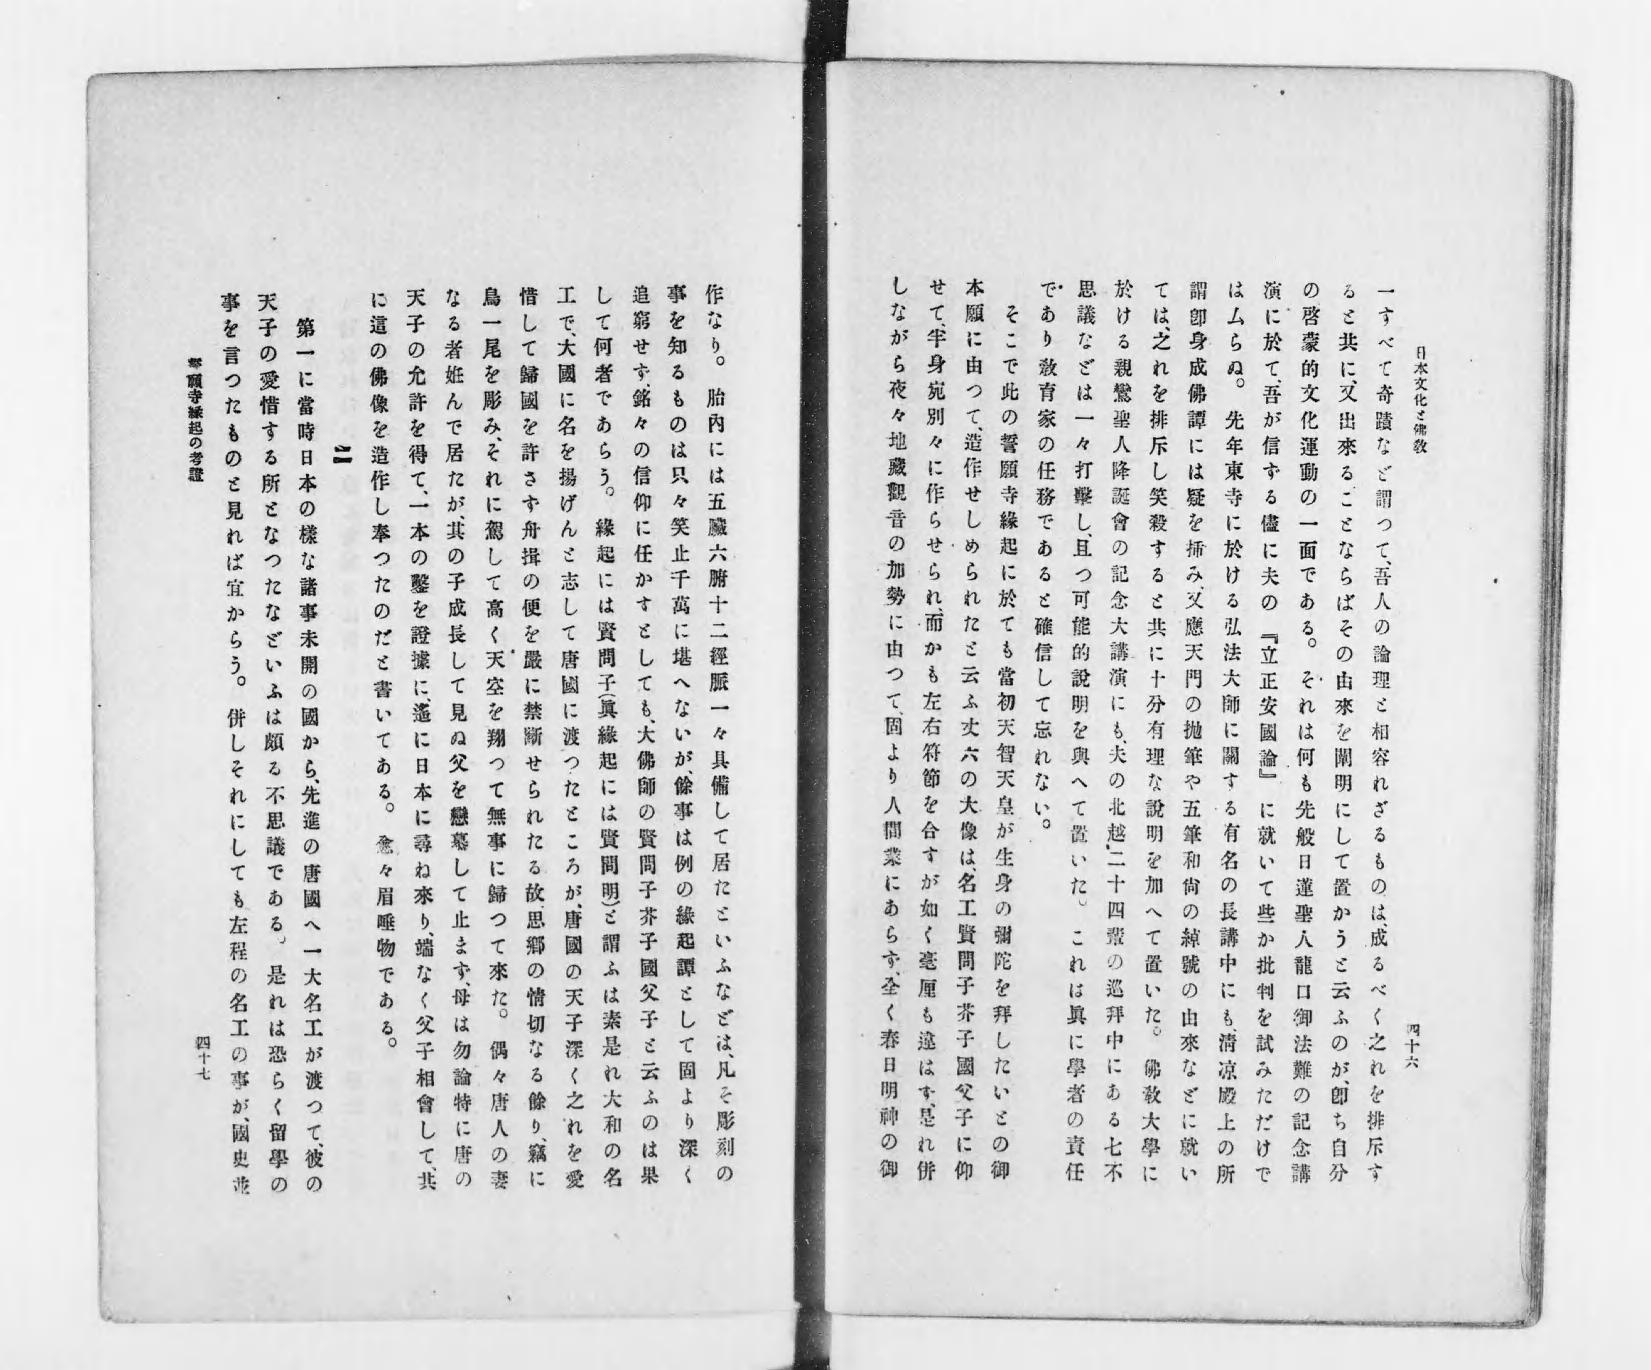 日本文化と佛敎
四十六
一すべて奇蹟など謂つて、吾人の論理と相容れざるものは、成るべく之れを排斥す
ると共に、又出來ることならばその由來を闡明にして置かうと云ふのが、卽ち自分
の啓蒙的文化運動の一面である。それは何も先般日蓮聖人龍口御法難の記念講
演に於て、吾が信ずる儘に夫の『立正安國論』に就いて些か批判を試みただけで
はムらぬ。先年東寺に於ける弘法大師に關する有名の長講中にも、淸凉殿上の所
謂卽身成佛譚には疑を揷み、又應天門の抛筆や五筆和尙の綽號の由來などに就い
ては、之れを排斥し笑殺すると共に十分有理な說明を加へて置いた。佛敎大學に
於ける親鸞聖人降誕會の記念大講演にも、夫の北越二十四輩の巡拜中にある七不
思議などは一々打擊し、且つ可能的說明を與へて置いた。これは眞に學者の責任
であり敎育家の任務であると確信して忘れない。
そこで此の誓願寺緣起に於ても當初天智天皇が生身の彌陀を拜したいとの御
本願に由つて、造作せしめられたと云ふ丈六の大像は、名工賢問子芥子國父子に仰
せて、半身宛別々に作らせられ、而かも左右符節を合すが如く毫厘も違はず、是れ併
しながら夜々地藏觀音の加勢に由つて、固より人間業にあらず、全く春日明神の御
作なり。胎內には五臟六腑十二經脈一々具備して居たといふなどは、凡そ彫刻の
事を知るものは只々笑止千萬に堪へないが、餘事は例の緣起譚として固より深く
追窮せず、銘々の信仰に任かすとしても、大佛師の賢問子芥子國父子と云ふのは果
して何者であらう。緣起には賢問子(眞緣起には賢問明)と謂ふは素是れ大和の名
工で、大國に名を揚げんと志して唐國に渡つたところが、唐國の天子深く之れを愛
惜して歸國を許さず舟揖の便を嚴に禁斷せられたる故、思鄕の情切なる餘り、竊に
鳥一尾を彫み、それに駕して高く天空を翔つて無事に歸つて來た。偶々唐人の妻
なる者姙んで居たが、其の子成長して見ぬ父を戀慕して止まず、母は勿論特に唐の
天子の允許を得て、一本の鑿を證據に、遙に日本に尋ね來り、端なく父子相會して、共
に這の佛像を造作し奉つたのだと書いてある。愈々眉唾物である。
二
第一に當時日本の樣な諸事未開の國から、先進の唐國へ一大名工が渡つて、彼の
天子の愛惜する所となつたなどいふは頗る不思議である。是れは恐らく留學の
事を言つたものと見れば宜からう。併しそれにしても左程の名工の事が、國史並
誓願寺緣起の考證
四十七